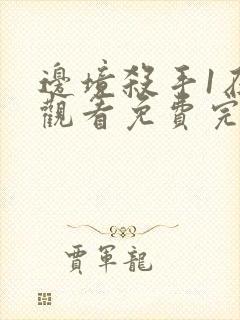 邊境殺手1在
觀看免費完
賈軍龍